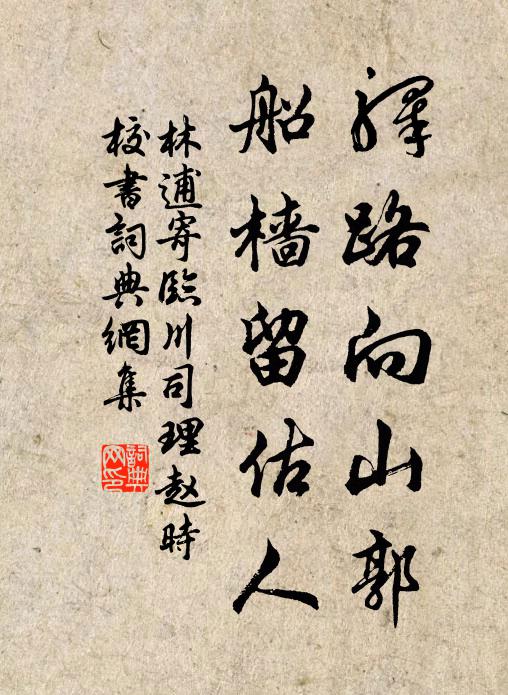 驛路向山郭
船檣留估人
林逋寄臨川司理赵時
校書詞典網集
詞典网印